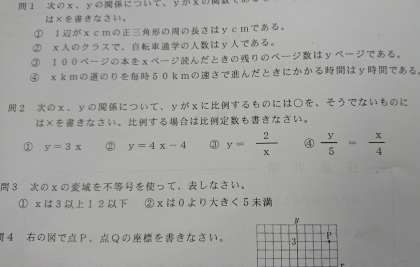 問1 次のx、yの関係について、yがxの関数であ
は×を書きなさい。
① 1辺がxcmの正三角形の周の長さはycmである。
② x人のクラスで、自転車通学の人数はy人である。
③ 100ページの本をxページ読んだときの残りのページ数はyページである。
④ xkmの道のりを毎時50kmの速さで進んだときにかかる時間はy時間である。
問2 次のx、yの関係について、yがxに比例するものには○を、そうでないものに
は×を書きなさい。比例する場合は比例定数も書きなさい。
① y=3x ② y=4x-4 ③ y=2/x ④ y/5=x/4
問3 次のxの変域を不等号を使って、表しなさい。
① xは3以上12以下 ②xは0より大きく5未満
問4 右の図で点P、点Qの座標を書きなさい。
y
3
P